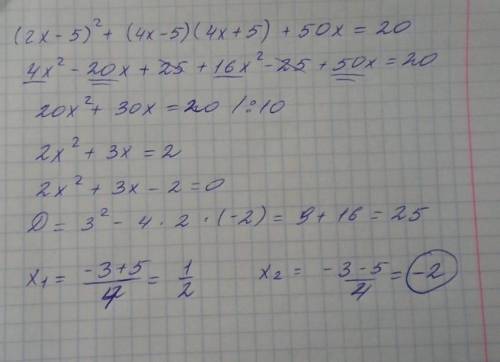 (2x - 5)² + (4x - 5)(4x + 5) + 50x = 20
4x² - 20x + 25 + 16x² - 25 + 50x = 20
20x² + 30x = 20 /:10
2x² + 3x = 2
2x² + 3x - 2 = 0
D = 3² - 4 · 2 · (-2) = 9 + 16 = 25
x₁ = (-3+5)/4 = 1/2   x₂ = (-3-5)/4 = -2